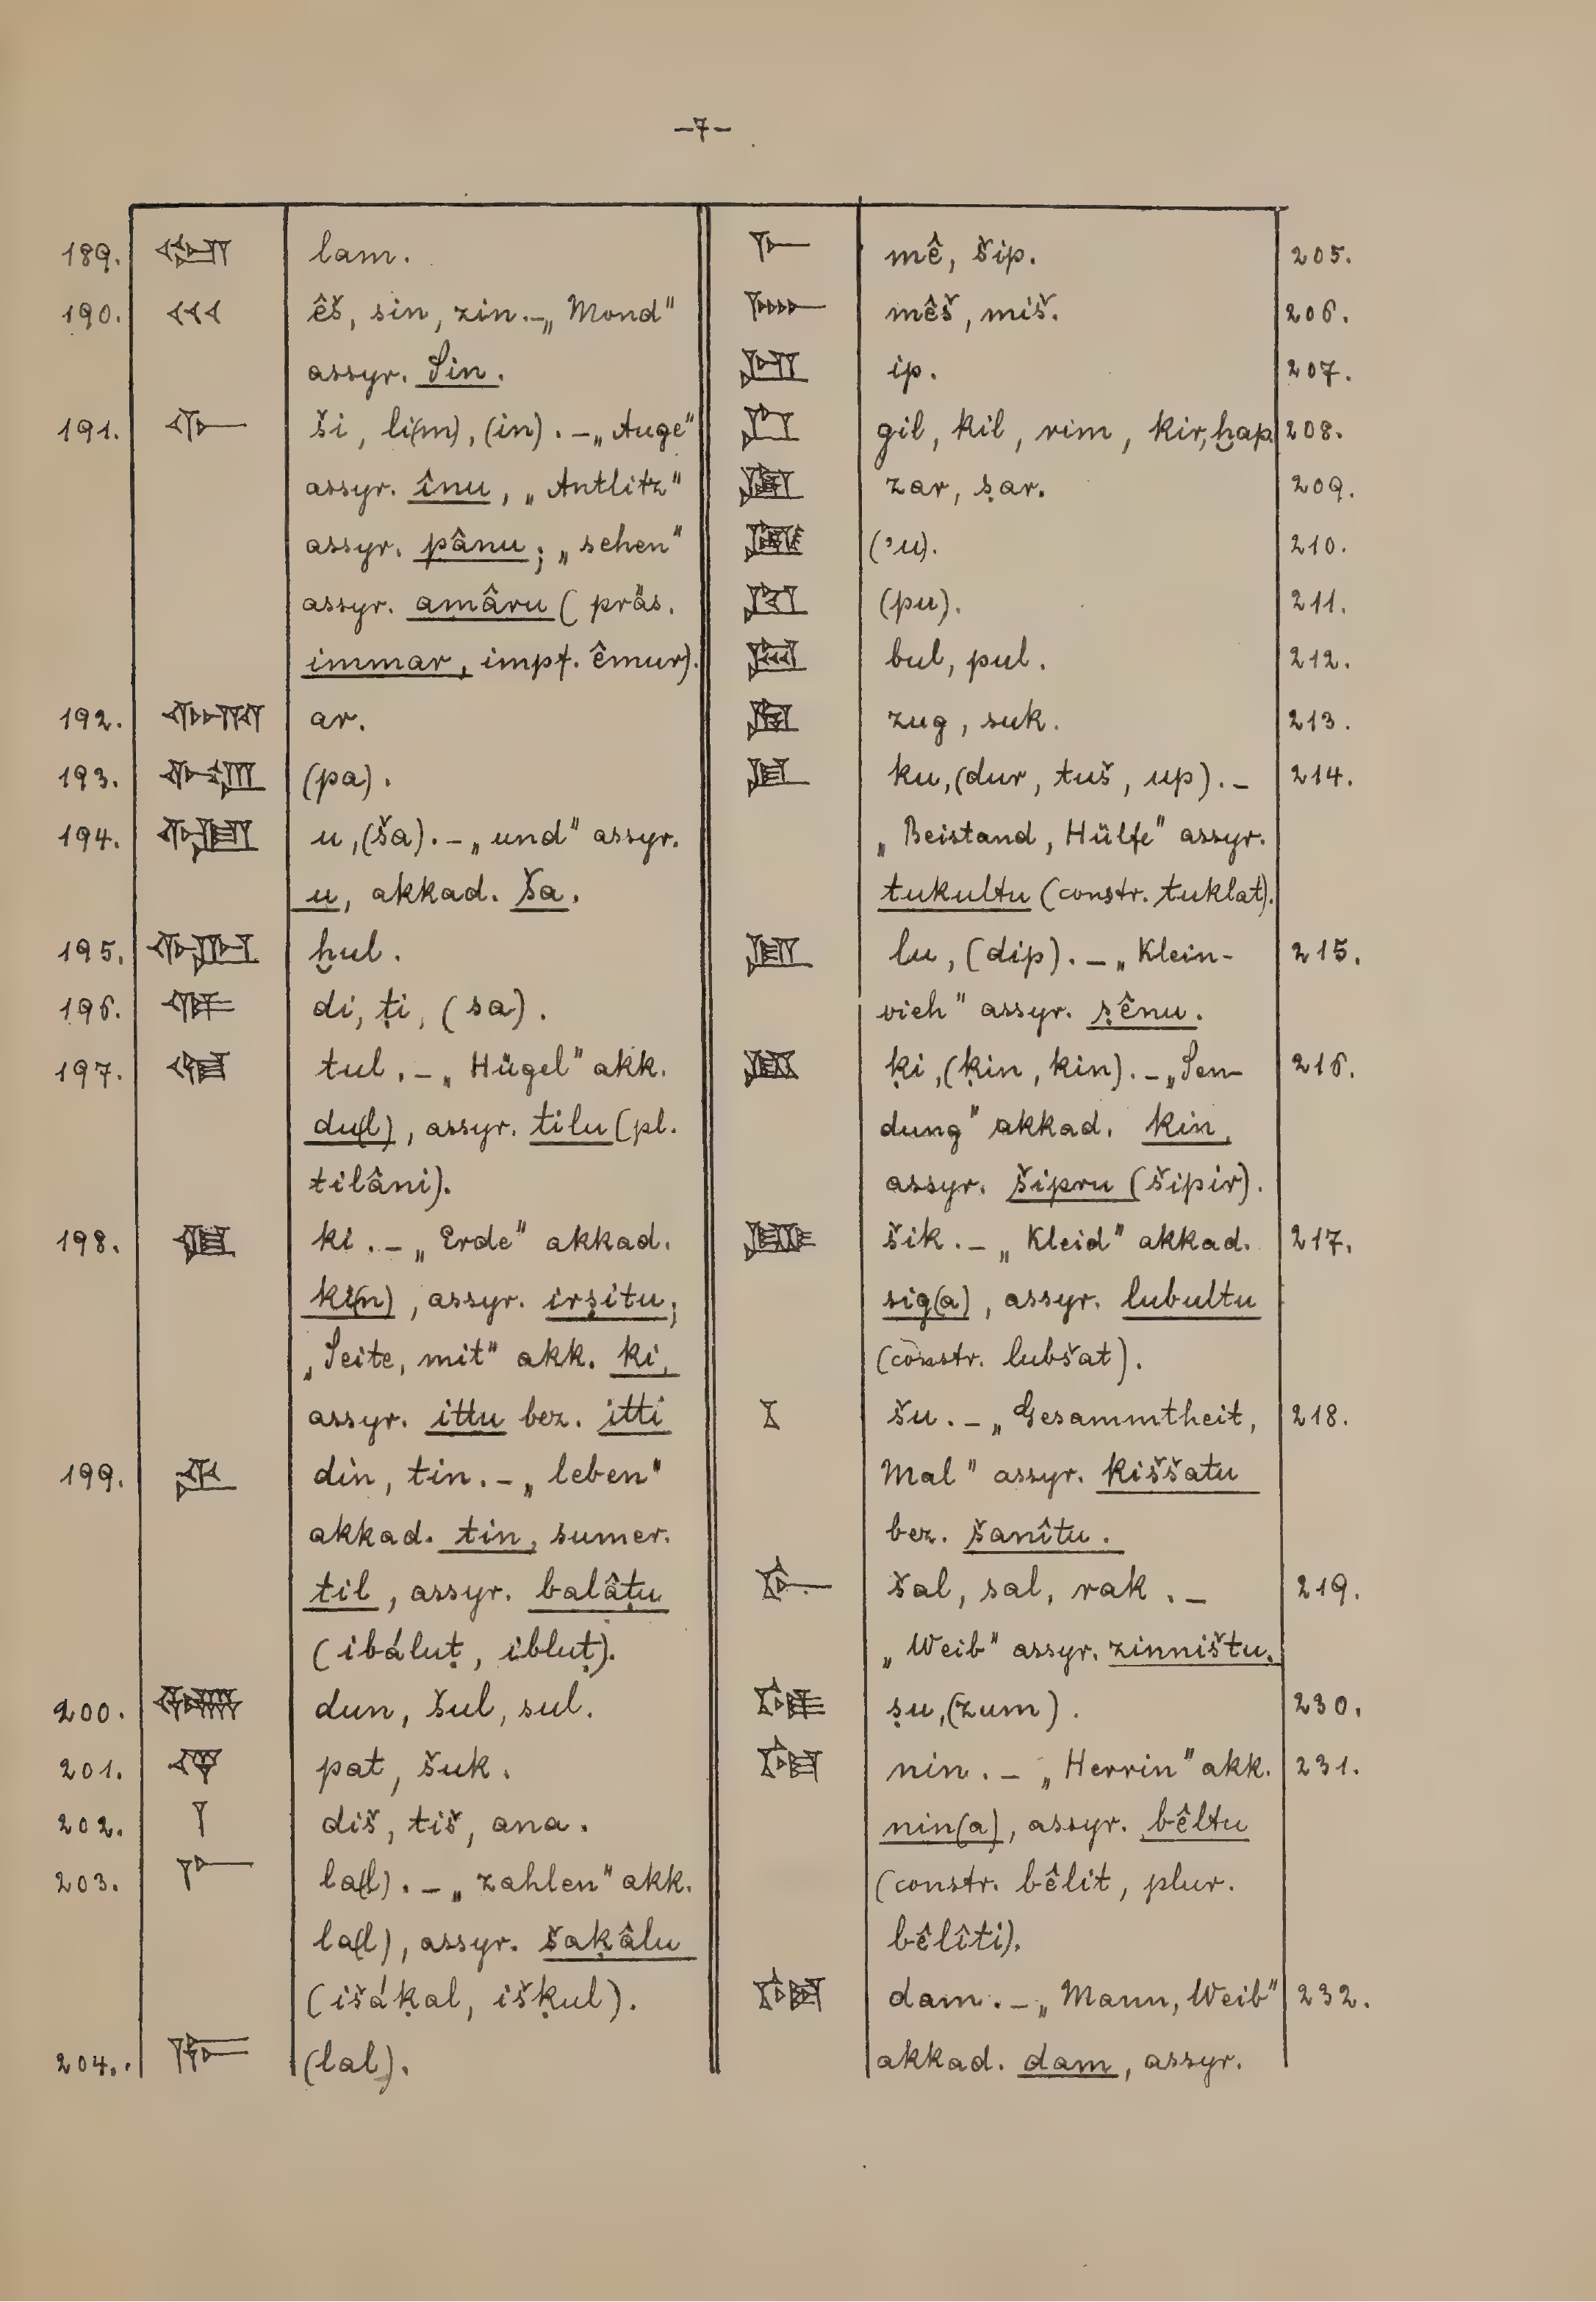 -7-
189. 𒇴 lam.
190. 𒌍 êš, sin, zin. – „Mond"
assyr. Sin.
191. 𒅆 ši, li(m), (in). – „Auge"
assyr. înu, „Antlitz"
assyr. pânu; „sehen"
assyr. amâru (präs.
immar, impf. êmur).
192. 𒅈 ar.
193. (pa).
194. 𒅇 u, (ša). – „und" assyr.
u, akkad. ša.
195. 𒅆𒌨 ḫul.
196. 𒁲 di, ṭi, (sa).
197. 𒇯 tul. – „Hügel" akk.
du(l), assyr. tilu (pl.
tilâni).
198. 𒆠 ki. – „Erde" akkad.
ki(n), assyr. irṣitu;
„Seite, mit" akk. ki,
assyr. ittu bez. itti
199. 𒁷 din, tin. – „leben"
akkad. tin, sumer.
til, assyr. balâṭu
(ibáluṭ, ibluṭ).
200. 𒂄 dun, šul, sul.
201. 𒉻 pat, šuk.
202. 𒁹 diš, tiš, ana.
203. 𒇲 la(l). – „zahlen" akk.
la(l), assyr. šaḳâlu
(išáḳal, išḳul).
204. (lal).
𒈨 mê, šip. 205.
𒈨𒌍 mêš, miš. 206.
𒅁 ip. 207.
𒆸 gil, kil, rim, kir, ḫap 208.
𒇡 zar, ṣar. 209.
𒇇 ('u). 210.
𒇥 (pu). 211.
𒇧 bul, pul. 212.
𒇪 zug, suk. 213.
𒆪 ku, (dur, tuš, up). – 214.
„Beistand, Hülfe" assyr.
tukultu (constr. tuklat).
𒇻 lu, (dip). – „Klein- 215.
vieh" assyr. ṣênu.
𒆥 ḳi, (ḳin, kin). – „Sen- 216.
dung" akkad. kin,
assyr. šipru (šipir).
𒋠 šik. – „Kleid" akkad. 217.
sig(a), assyr. lubultu
(constr. lubšat).
𒋙 šu. – „Gesammtheit, 218.
Mal" assyr. kiššatu
bez. šanîtu.
𒊩 šal, sal, rak. – 219.
„Weib" assyr. zinništu.
𒍮 ṣu, (zum). 230.
𒊩𒌆 nin. – „Herrin" akk. 231.
nin(a), assyr. bêltu
(constr. bêlit, plur.
bêlîti).
𒁮 dam. – „Mann, Weib" 232.
akkad. dam, assyr.